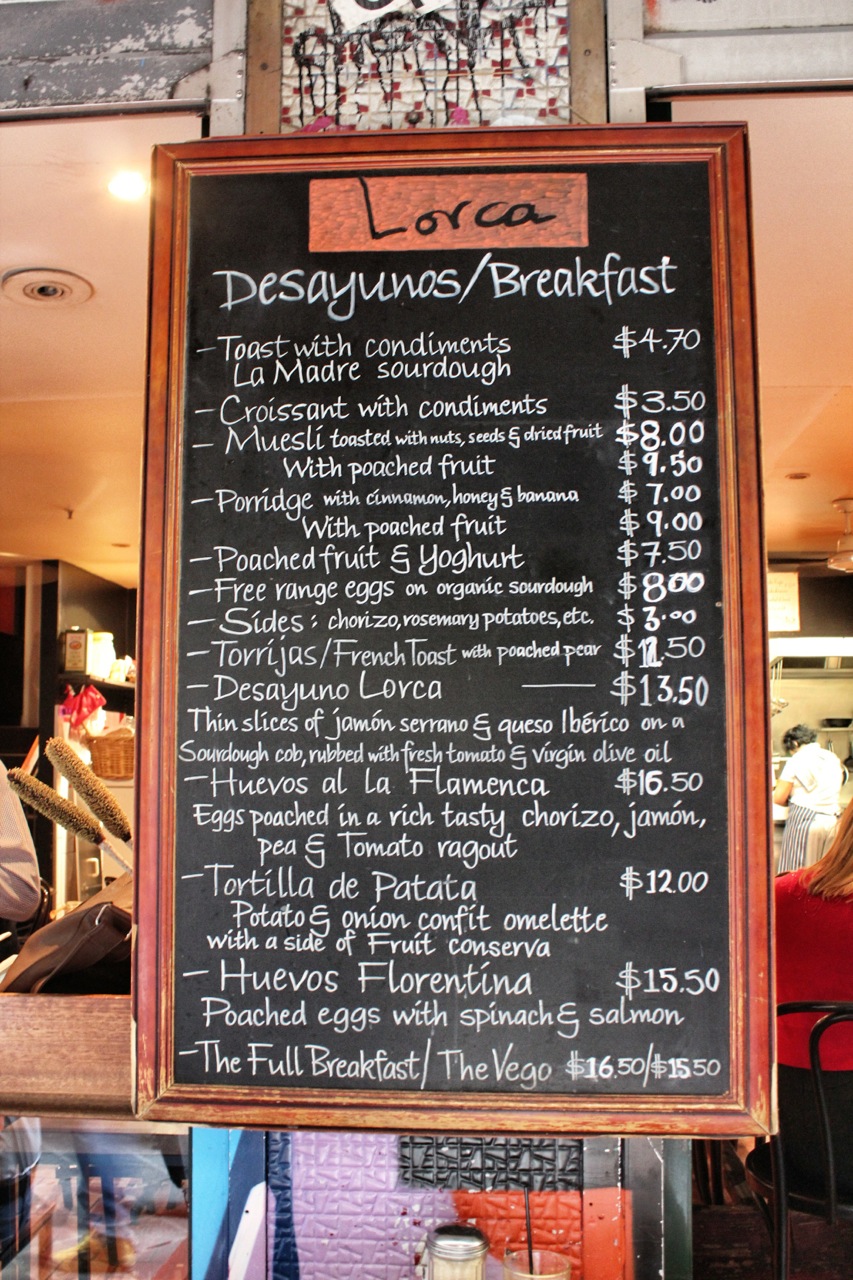 Lorca
Desayunos/Breakfast
- Toast with condiments $4.70
La Madre sourdough
- Croissant with condiments $3.50
- Muesli toasted with nuts, seeds & dried fruit $8.00
With poached fruit $9.50
- Porridge with cinnamon, honey & banana $7.00
With poached fruit $9.00
- Poached fruit & Yoghurt $7.50
- Free range eggs on organic sourdough $8.00
- Sides: chorizo, rosemary potatoes, etc. $3.00
- Torrijas/French Toast with poached pear $11.50
- Desayuno Lorca — $13.50
Thin slices of jamón serrano & queso Ibérico on a
Sourdough cob, rubbed with fresh tomato & virgin olive oil
- Huevos al la Flamenca $16.50
Eggs poached in a rich tasty chorizo, jamón,
pea & Tomato ragout
- Tortilla de Patata $12.00
Potato & onion confit omelette
with a side of Fruit conserva
- Huevos Florentina $15.50
Poached eggs with spinach & salmon
- The Full Breakfast/ The Vego $16.50/$15.50